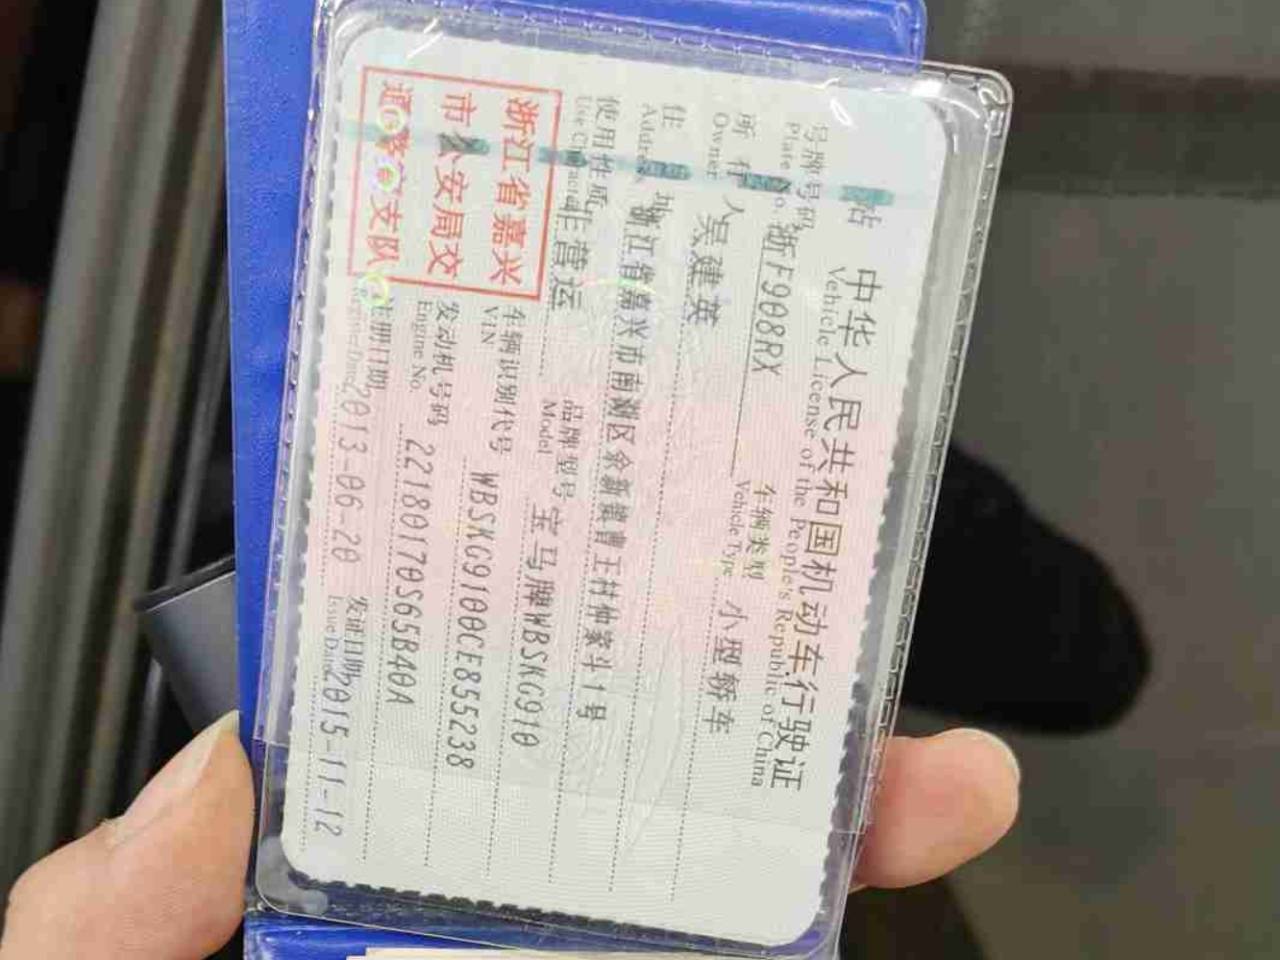 中华人民共和国机动车行驶证
Vehicle License of the People's Republic of China
号牌号码 浙F908RX 车辆类型 小型轿车
Plate No. Vehicle Type
所有人 吴建英
Owner
住址 浙江省嘉兴市南湖区余新镇曹王村仲家斗1号
Address
使用性质 非营运 品牌型号 宝马牌WBSKG910
Use Character Model
浙江省嘉兴
市公安局交
通警察支队
车辆识别代号 WBSKG9100CE855238
VIN
发动机号码 22180170S65B40A
Engine No.
注册日期 2013-06-20 发证日期 2015-11-12
Register Date Issue Date